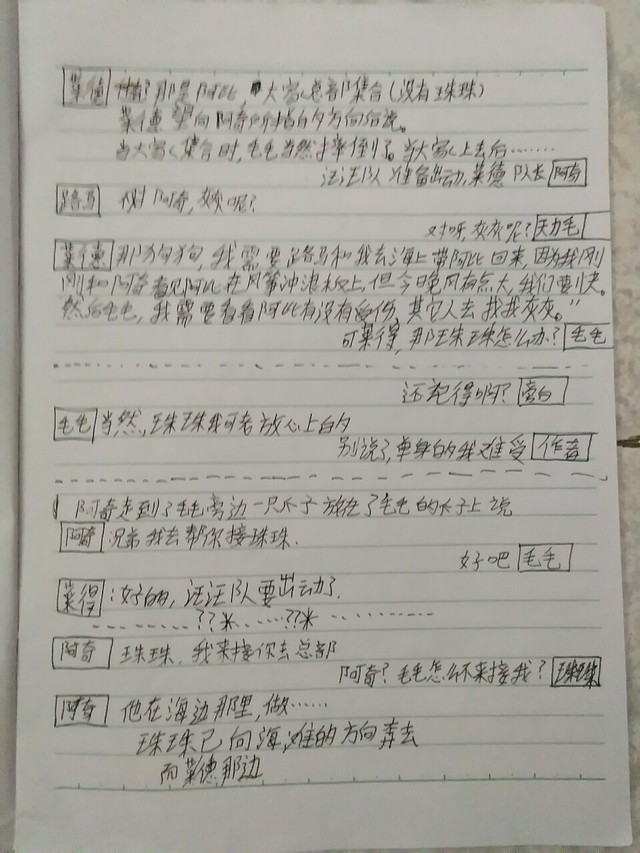 莱德 那是阿此 大家总部集合(没有珠珠)
莱德望向阿奇所指的方向后说。
当大家集合时,毛毛当然摔倒了。当大家上去后……
汪汪队准备出动,莱德队长 阿奇
路马 阿奇,灰灰呢?
对呀,灰灰呢? 天力毛
莱德 那狗狗,我需要路马和我去海上带阿此回来,因为我刚
刚和阿奇看见阿此在风筝冲浪板上,但今晚风有点大,我们要快。
然后毛毛,我需要看看阿此有没有受伤,其它人去找找灰灰。”
可莱得,那珠珠怎么办? 毛毛
还记得啊? 旁白
毛毛 当然,珠珠我可是放心上的
别说了,单身的我难受 作者
阿奇走到了毛毛旁边一只爪子放在了毛毛的爪子上说
阿奇 兄弟我去帮你接珠珠.
好吧 毛毛
莱得:好的,汪汪队要出动了.
??米……??米
阿奇 珠珠.我来接你去总部
阿奇?毛毛怎么不来接我? 珠珠
阿奇 他在海边那里,做……
珠珠已向海滩的方向奔去
而莱德那边